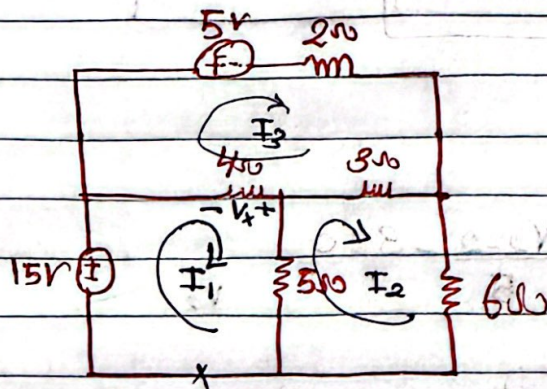 5V 2Ω
+ -
I3
4Ω 3Ω
- Vx +
15V + I1 5Ω I2 6Ω
x